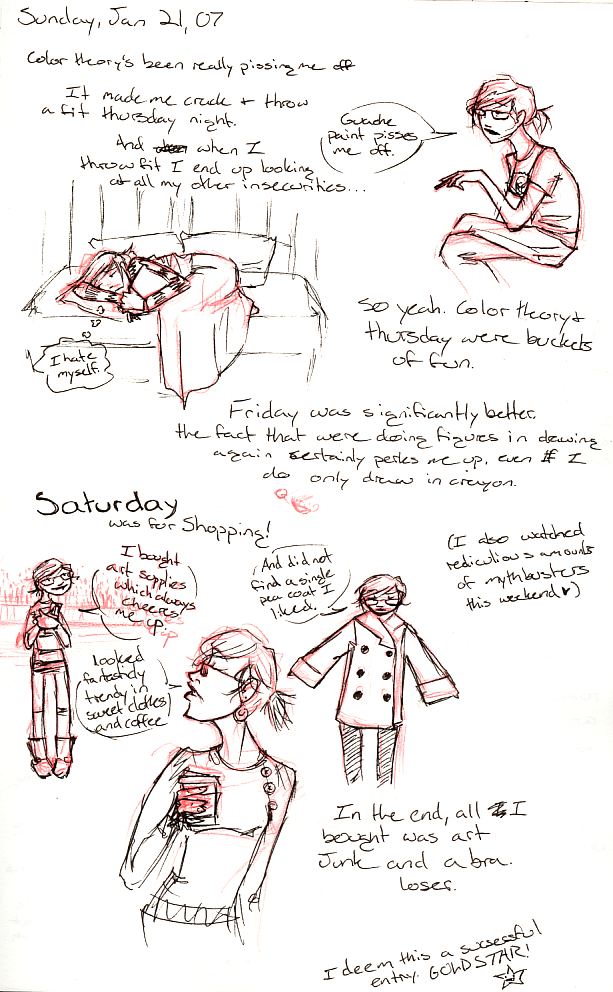 Sunday, Jan 21, 07
Color theory's been really pissing me off
It made me crack + throw
a fit thursday night.
And when I
throw fit I end up looking
at all my other insecurities...
Guache
paint pisses
me off.
I hate
myself.
So yeah. Color theory +
thursday were buckets
of fun.
Friday was significantly better.
the fact that were doing figures in drawing
again certainly perks me up, even if I
do only draw in crayon.
Saturday
was for Shopping!
I bought
art supplies
which always
cheeres
me up.
up
And did not
find a single
pea coat I
liked.
(I also watched
rediculious amounts
of mythbusters
this weekend ♥)
looked
fantasticly
trendy in
sweet clothes
and coffee
In the end, all I
bought was art
junk and a bra.
loser.
I deem this a sucsessful
entry. GOLD STAR!